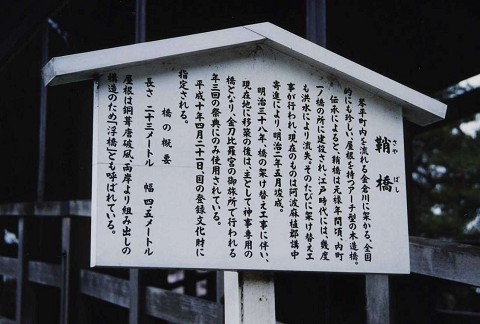 鞘橋
さや ばし
琴平町内を流れる金倉川に架かる、全国
的にも珍しい屋根を持つアーチ型の木造橋。
伝承によると、鞘橋は元禄年間頃、内町
一ノ橋の所に建設され、江戸時代には、幾度
も洪水により流失、そのたびに架け替え工
事が行われ、現在のものは阿波麻植郡講中
寄進により、明治二年五月竣成。
明治三十八年、橋の架け替え工事に伴い、
現在地に移築の後は、主として神事専用の
橋となり、金刀比羅宮の御旅所で行われる
年三回の祭典にのみ使用されている。
平成十年四月二十一日、国の登録文化財に
指定される。
橋の概要
長さ 二十三メートル 幅 四・五メートル
屋根は銅葺唐破風、両岸より組み出しの
構造のため「浮橋」とも呼ばれている。